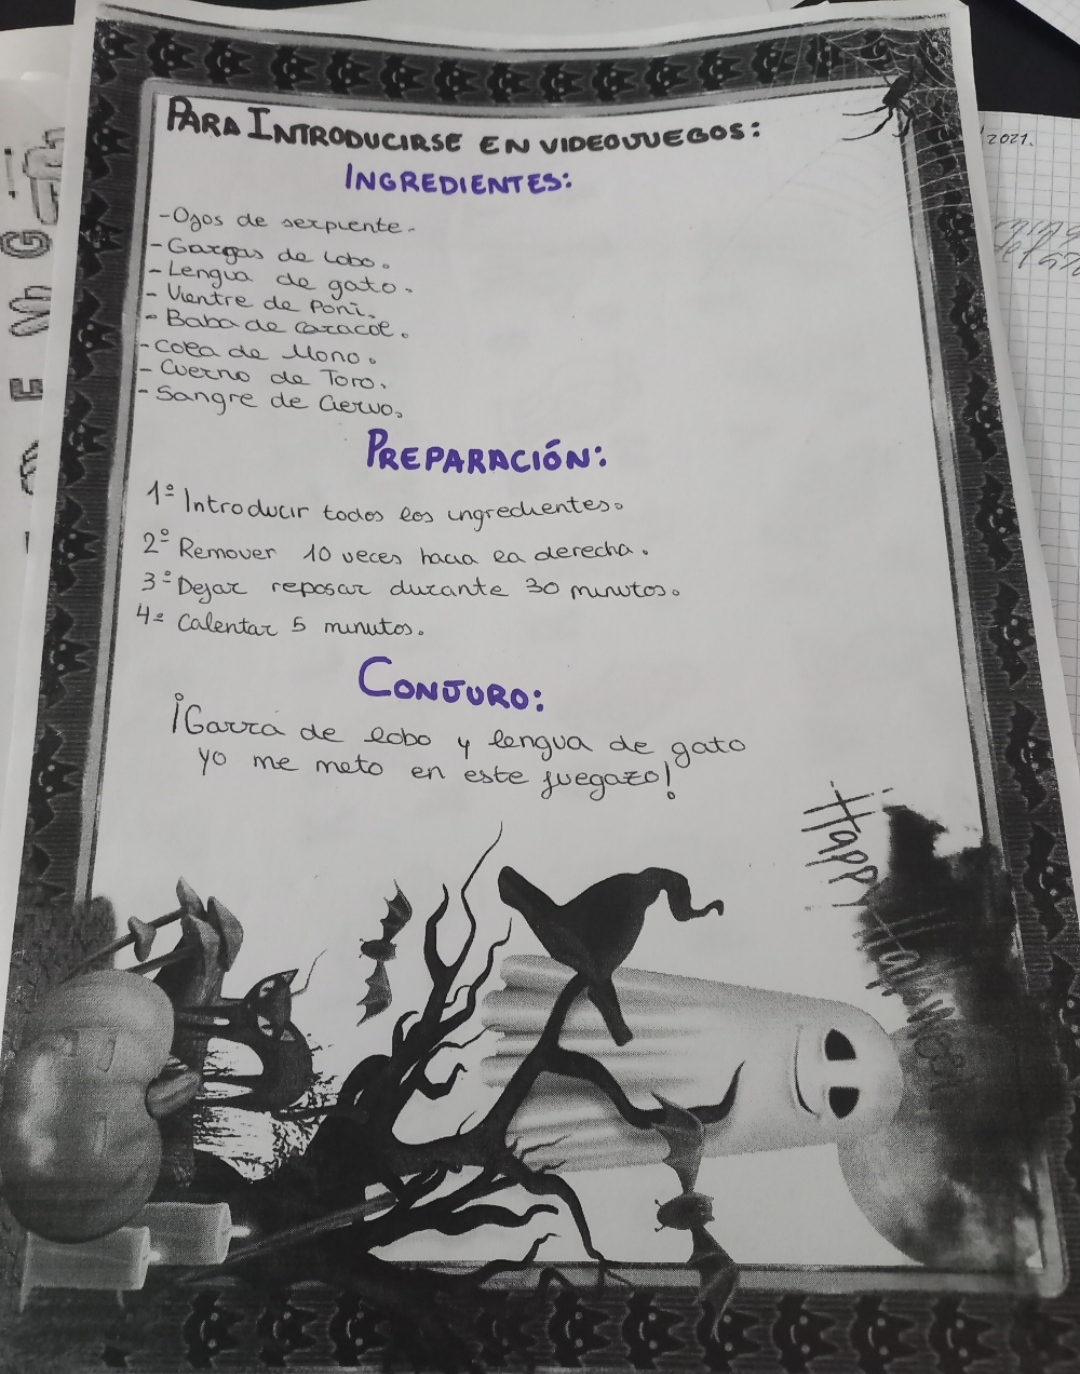 PARA INTRODUCIRSE EN VIDEOJUEGOS:
INGREDIENTES:
-Ojos de serpiente.
-Gargas de lobo.
-Lengua de gato.
- Vientre de Poni.
- Baba de caracol.
-Cola de Mono.
- Cuerno de Toro.
- Sangre de Ciervo.
PREPARACIÓN:
1º Introducir todos los ingredientes.
2º Remover 10 veces hacia la derecha.
3º Dejar reposar durante 30 minutos.
4º Calentar 5 minutos.
CONJURO:
¡Garra de lobo y lengua de gato
yo me meto en este juegazo!
Happy Halloween
2021.